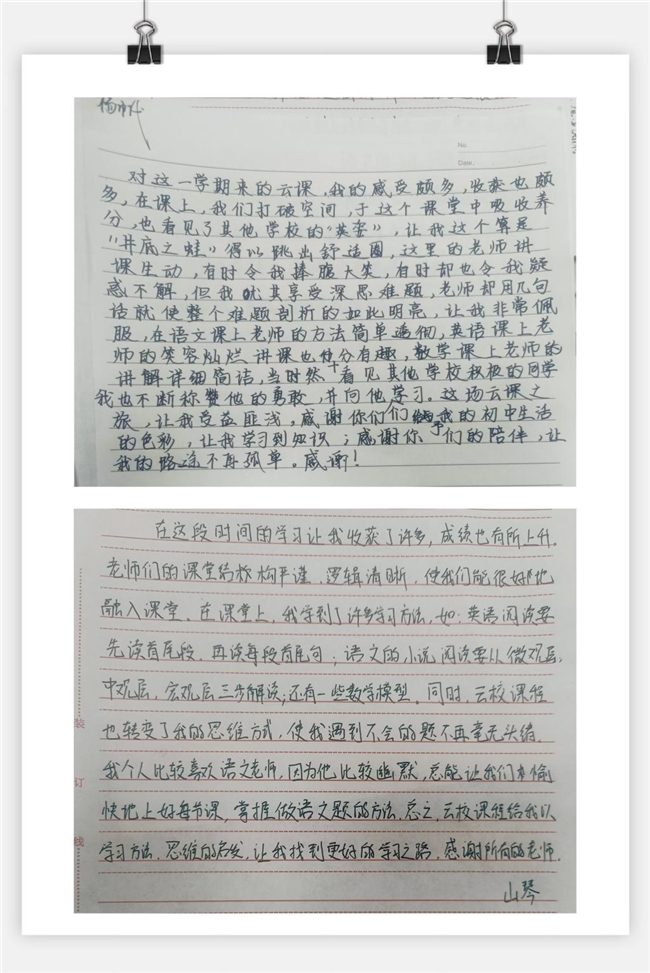 No.
Date.
对这一学期来的云课,我的感受颇多,收获也颇
多,在课上,我们打破空间,于这个课堂中吸收养
分,也看见了其他学校的“英荃”,让我这个算是
“井底之蛙”得以跳出舒适圈,这里的老师讲
课生动,有时令我捧腹大笑,有时却也令我疑
惑不解,但我尤其享受深思难题,老师却用几句
话就使整个难题剖析的如此明亮,让我非常佩
服,在语文课上老师的方法简单透彻,英语课上老
师的笑容灿烂讲课也十分有趣,数学课上老师的
讲解详细简洁,当时然看见其他学校积极的同学
我也不断称赞他的勇敢,并向他学习。这场云课之
旅,让我受益匪浅,感谢你们们给予我的初中生活
的色彩,让我学习到知识;感谢你们的陪伴,让
我的路途不再孤单。感谢!
在这段时间的学习让我收获了许多,成绩也有所上升.
老师们的课堂结构严谨、逻辑清晰,使我们能很好地
融入课堂。在课堂上,我学到了许多学习方法,如:英语阅读要
先读首尾段,再读每段首尾句;语文的小说阅读要从微观层,
中观层,宏观层三步解读;还有一些数学模型。同时,云校课程
也转变了我的思维方式,使我遇到不会的题不再毫无头绪.
我个人比较喜欢语文老师,因为他比较幽默,总能让我们愉
快地上好每节课,掌握做语文题的方法.总之,云校课程给我以
学习方法,思维的启发,让我找到更好的学习之路,感谢所有的老师.
山琴
装
订
线